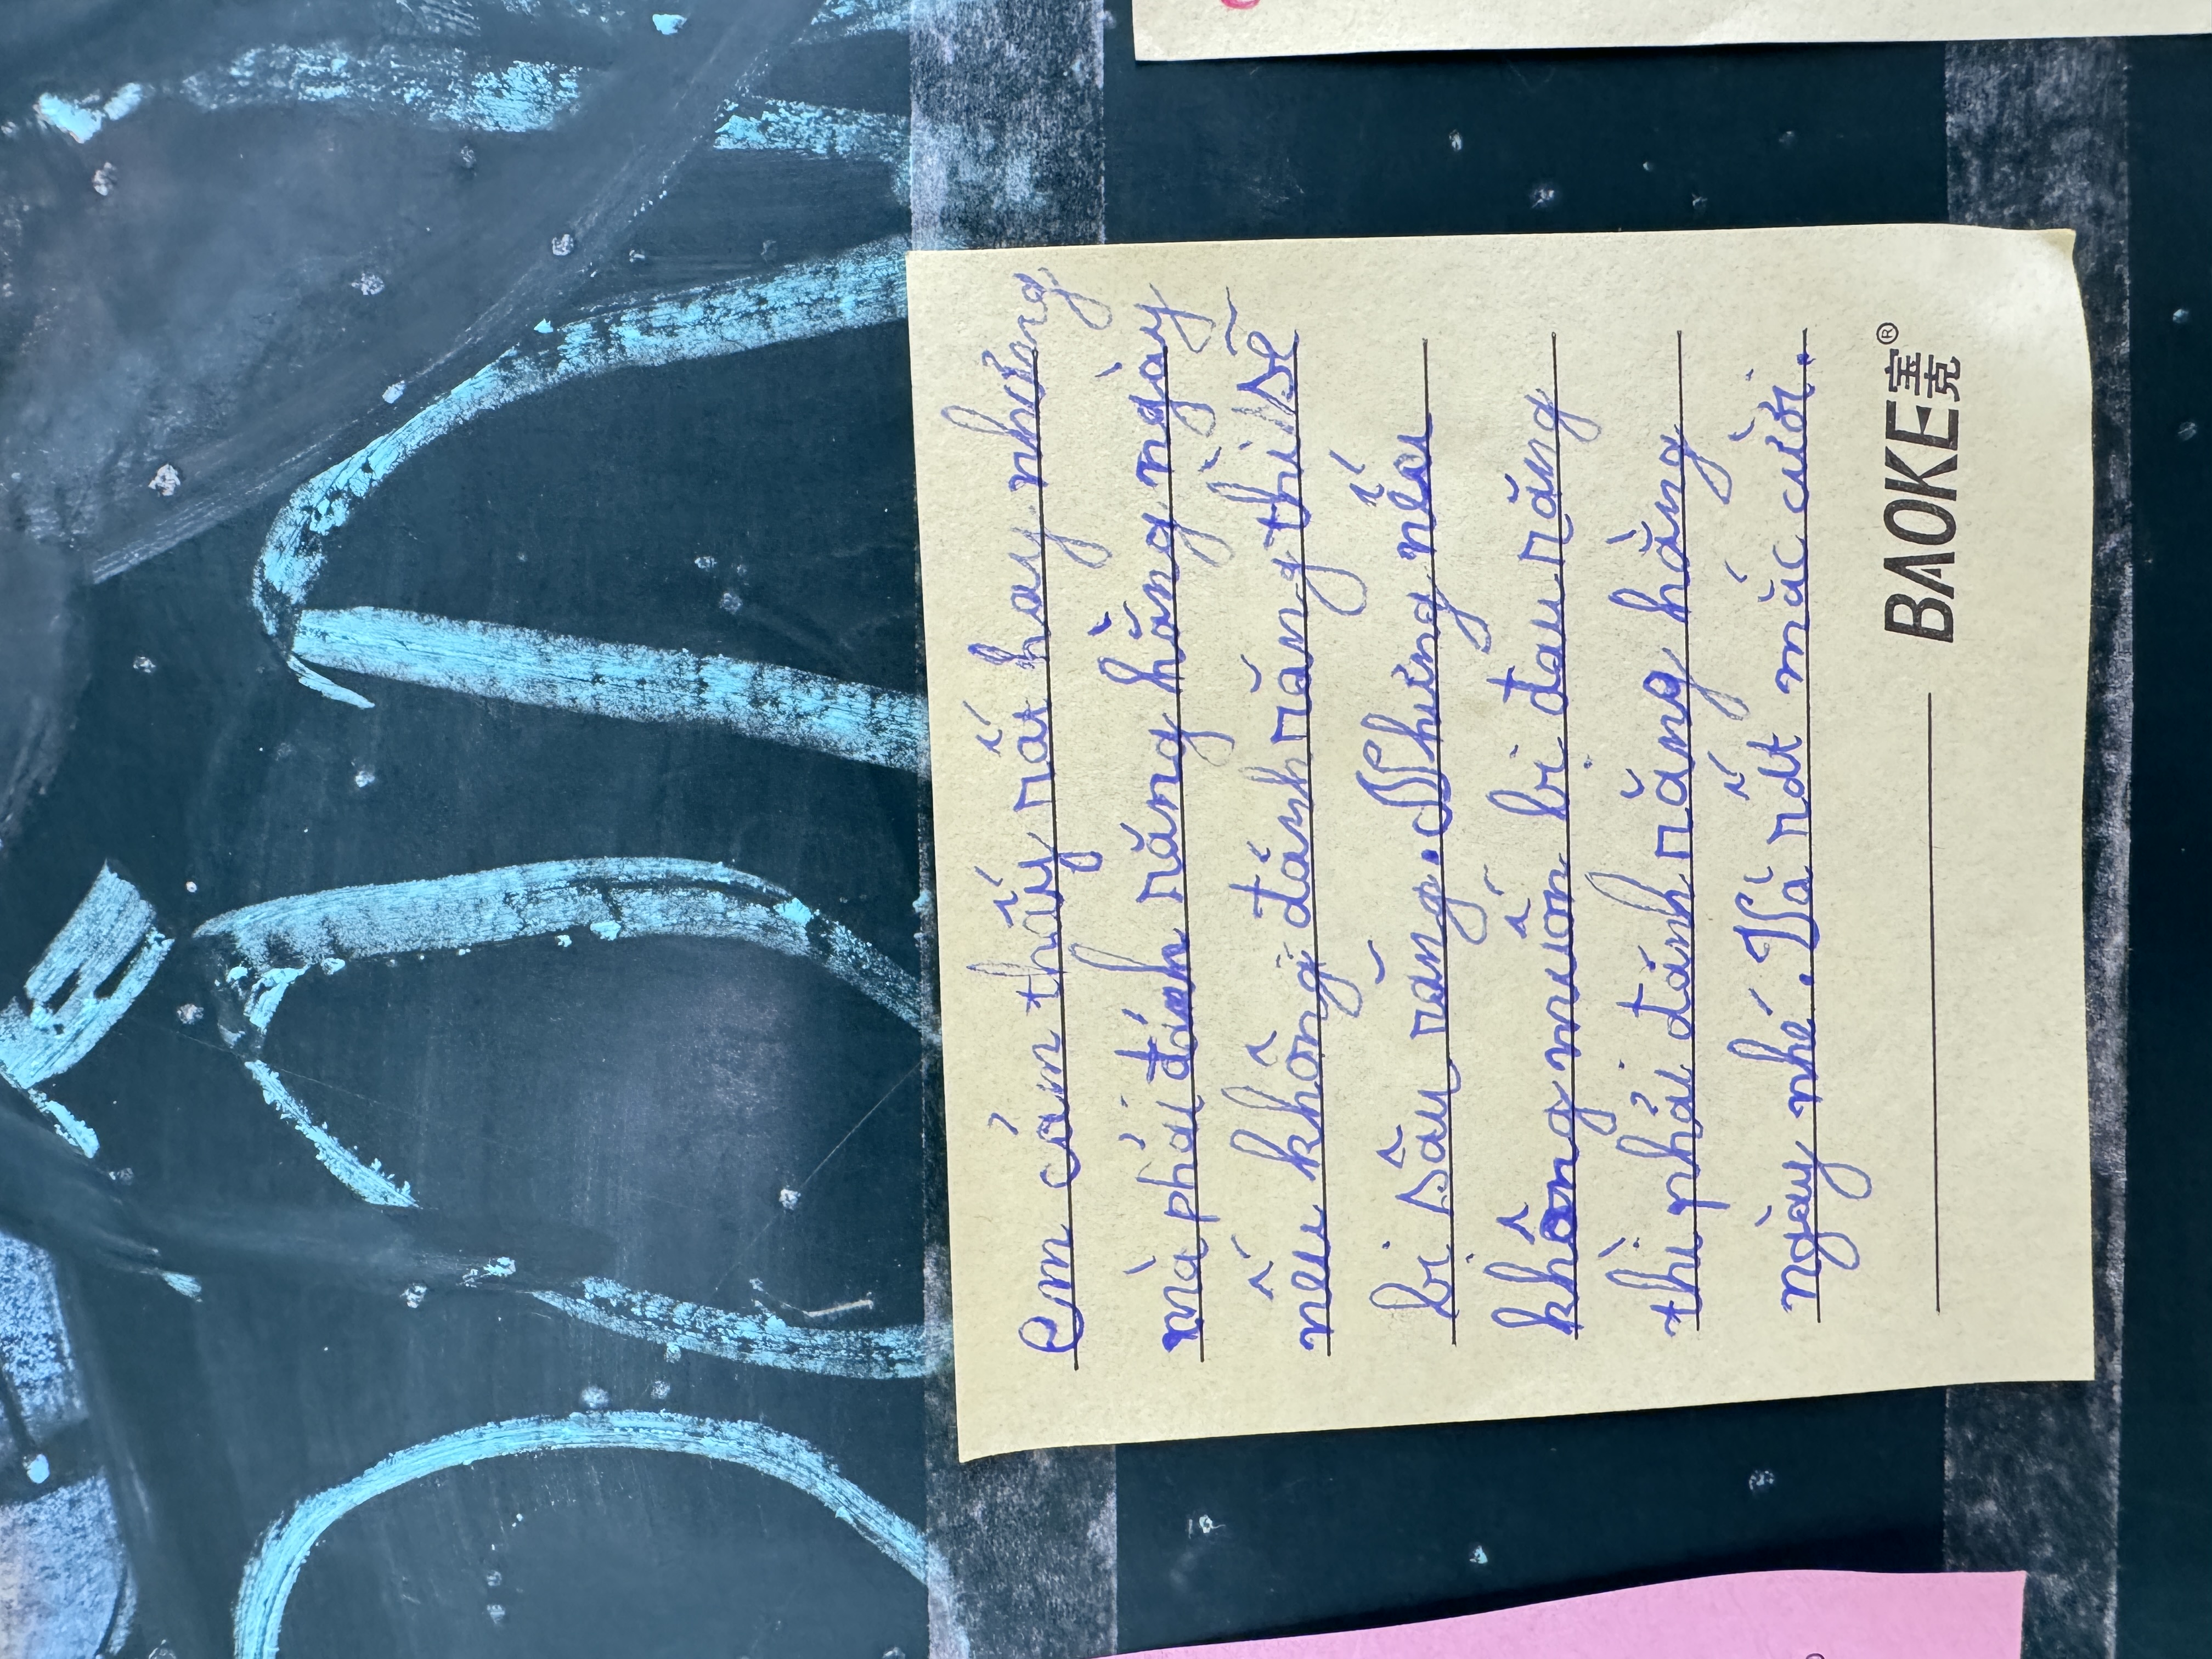 Em cảm thấy rất hay nhưng
mà phải đánh răng hằng ngày
nếu không đánh răng thì sẽ
bị sâu răng. Nhưng nếu
không muốn bị đau răng
thì phải đánh răng hằng
ngày nhé. Và rất mắc cười.
BAOKE宝克®